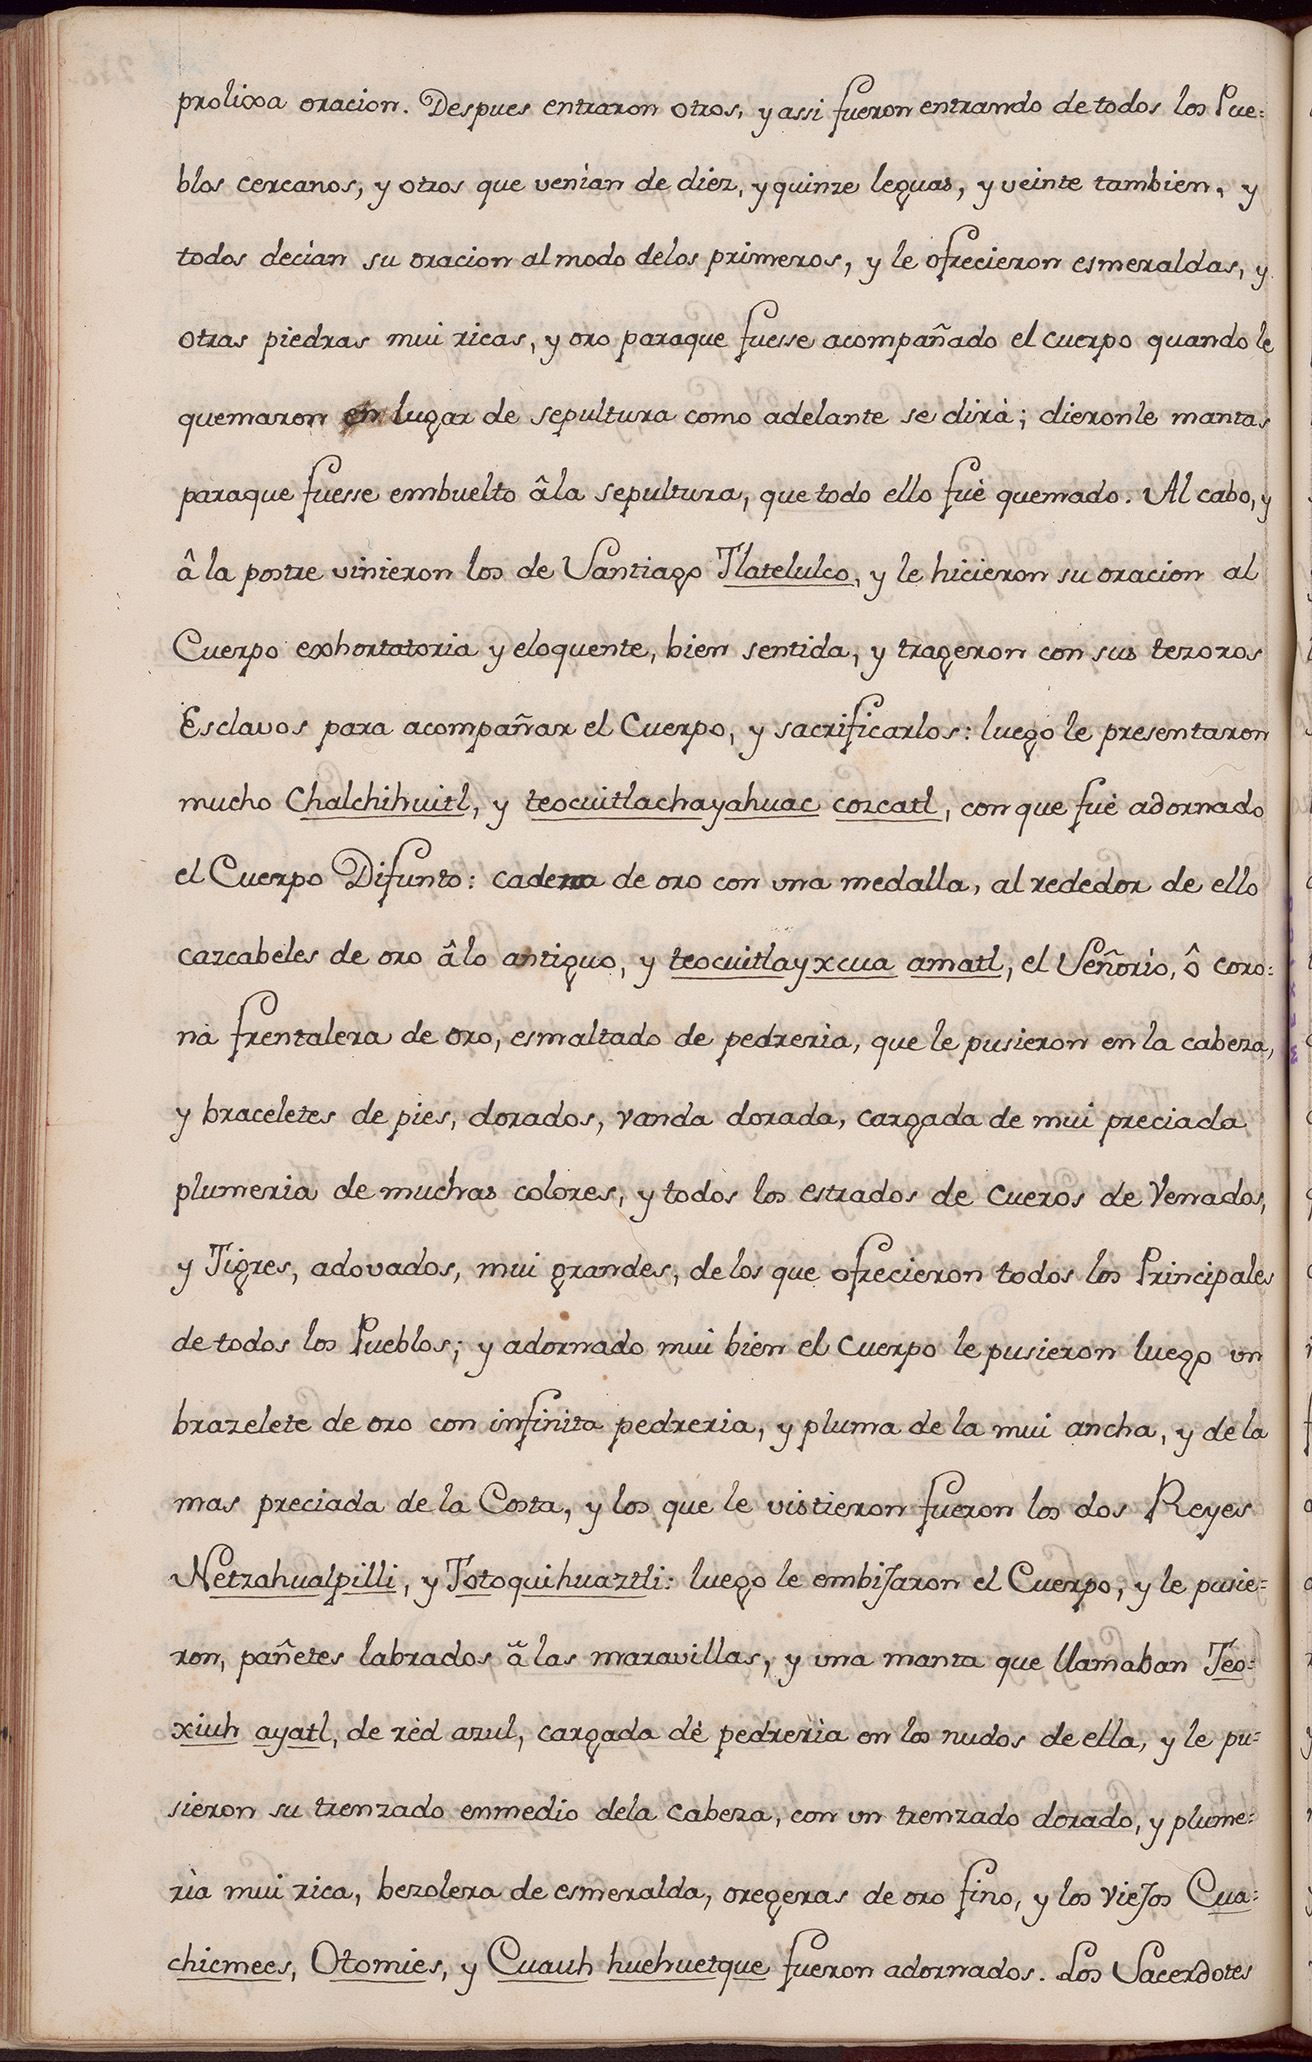 prolixa oracion. Despues entraron otros, y assi fueron entrando de todos los Pue=
blos cercanos, y otros que venian de diez, y quinze leguas, y veinte tambien, y
todos decian su oracion al modo delos primeros, y le ofrecieron esmeraldas, y
otras piedras mui ricas, y oro paraque fuesse acompañado el cuerpo quando le
quemaron en lugar de sepultura como adelante se dirà; dieronle mantas
paraque fuesse embuelto âla sepultura, que todo ello fuè quemado. Al cabo, y
â la postre vinieron los de Santiago Tlatelulco, y le hicieron su oracion al
Cuerpo exhortatoria y eloquente, bien sentida, y trageron con sus tezoros
Esclavos para acompañar el Cuerpo, y sacrificarlos: luego le presentaron
mucho Chalchihuitl, y teocuitlachayahuac cozcatl, con que fuè adornado
el Cuerpo Difunto: cadena de oro con una medalla, al rededor de ello
cazcabeles de oro âlo antiguo, y teocuitlayxcua amatl, el Señorìo, ô coro=
na frentalera de oro, esmaltado de pedreria, que le pusieron en la cabeza,
y braceletes de pies, dorados, vanda dorada, cargada de mui preciada
plumeria de muchas colores, y todos los estrados de cueros de Venados,
y Tigres, adovados, mui grandes, de los que ofrecieron todos los Principales
de todos los Pueblos; y adornado mui bien el cuerpo le pusieron luego un
brazelete de oro con infinita pedreria, y pluma de la mui ancha, y de la
mas preciada de la Costa, y los que le vistieron fueron los dos Reyes
Netzahualpilli, y Totoquihuaztli: luego le embijaron el Cuerpo, y le pusie=
ron, pañetes labrados â las maravillas, y una manta que llamaban Teo=
xiuh ayatl, de rèd azul, cargada dè pedrerìa en los nudos de ella, y le pu=
sieron su trenzado enmedio dela cabeza, con un trenzado dorado, y plume=
rìa mui rica, bezolera de esmeralda, oregeras de oro fino, y los viejos Cua=
chicmees, Otomies, y Cuauh huehuetque fueron adornados. Los Sacerdotes